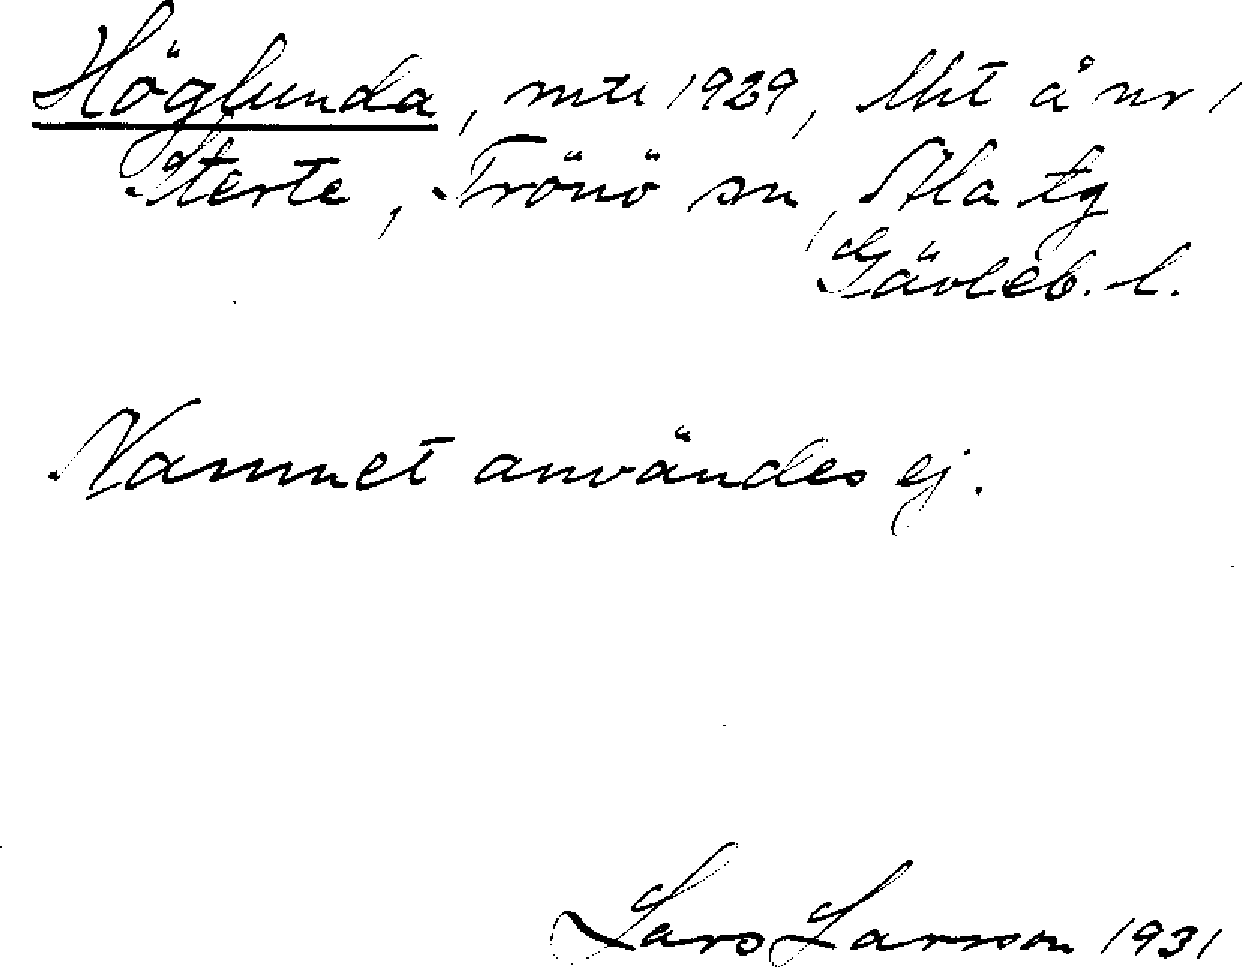 Höglunda, mtu 1929, lht å nr 1
Sterte, Trönö sn, Ala tg
Gävleb. l.
Namnet användes ej.
Lars Larsson 1931